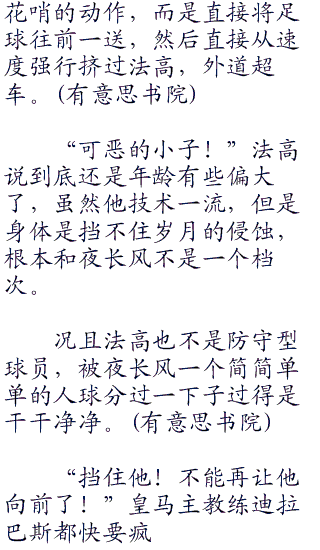 花哨的动作，而是直接将足
球往前一送，然后直接从速
度强行挤过法高，外道超
车。(有意思书院)
“可恶的小子！”法高
说到底还是年龄有些偏大
了，虽然他技术一流，但是
身体是挡不住岁月的侵蚀，
根本和夜长风不是一个档
次。
况且法高也不是防守型
球员，被夜长风一个简简单
单的人球分过一下子过得是
干干净净。(有意思书院)
“挡住他！不能再让他
向前了！”皇马主教练迪拉
巴斯都快要疯